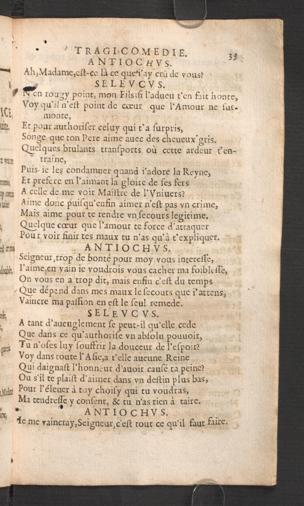 TRAGI-COMEDIE. 33
ANTIOCHVS.
Ah, Madame, est-ce là ce que i'ay crû de vous?
SELEVCVS.
N'en rougy point, mon Fils, si l'adueu t'en fait honte,
Voy qu'il n'est point de cœur que l'Amour ne surmonte,
Et pour authoriser celuy qui t'a surpris,
Songe que ton Pere aime auec des cheueux gris.
Quelques brulants transports où cette ardeur t'entraine,
Puis-ie les condamner quand i'adore la Reyne,
Et prefere en l'aimant la gloire de ses fers
A celle de me voir Maistre de l'Vniuers?
Aime donc puisqu'enfin aimer n'est pas vn crime,
Mais aime pour te rendre vn secours legitime.
Quelque cœur que l'amour te force d'attaquer
Pour voir finir tes maux tu n'as qu'à t'expliquer.
ANTIOCHVS.
Seigneur, trop de bonté pour moy vous interesse,
I'aime, en vain ie voudrois vous cacher ma foiblesse,
On vous en a trop dit, mais enfin c'est du temps
Que dépend dans mes maux le secours que i'attens,
Vaincre ma passion en est le seul remede.
SELEVCVS.
A tant d'aueuglement se peut-il qu'elle cede
Que dans ce qu'authorise vn absolu pouuoir,
Tu n'oses luy souffrir la douceur de l'espoir?
Voy dans toute l'Asie, a t'elle aucune Reine
Qui daignast l'honneur d'auoir causé ta peine?
Ou s'il te plaist d'aimer dans vn destin plus bas,
Pour l'éleuer à toy choisy qui tu voudras,
Ma tendresse y consent, & tu n'as rien à taire.
ANTIOCHVS.
Ie me vaincray, Seigneur, c'est tout ce qu'il faut faire.